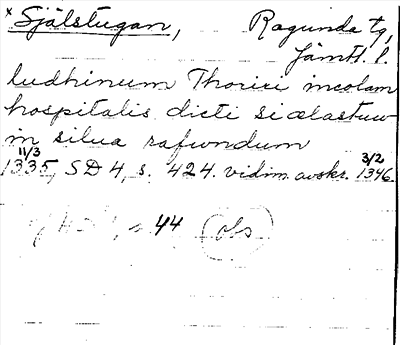 x Själstugan, Ragunda tg,
Jämtl. l.
ludhinum Thorici incolam
hospitalis dicti siælastuw
in silua rafwndum
11/3 1335, SD 4, s. 424. vidim. avskr. 3/2 1346.
s. 44 obs